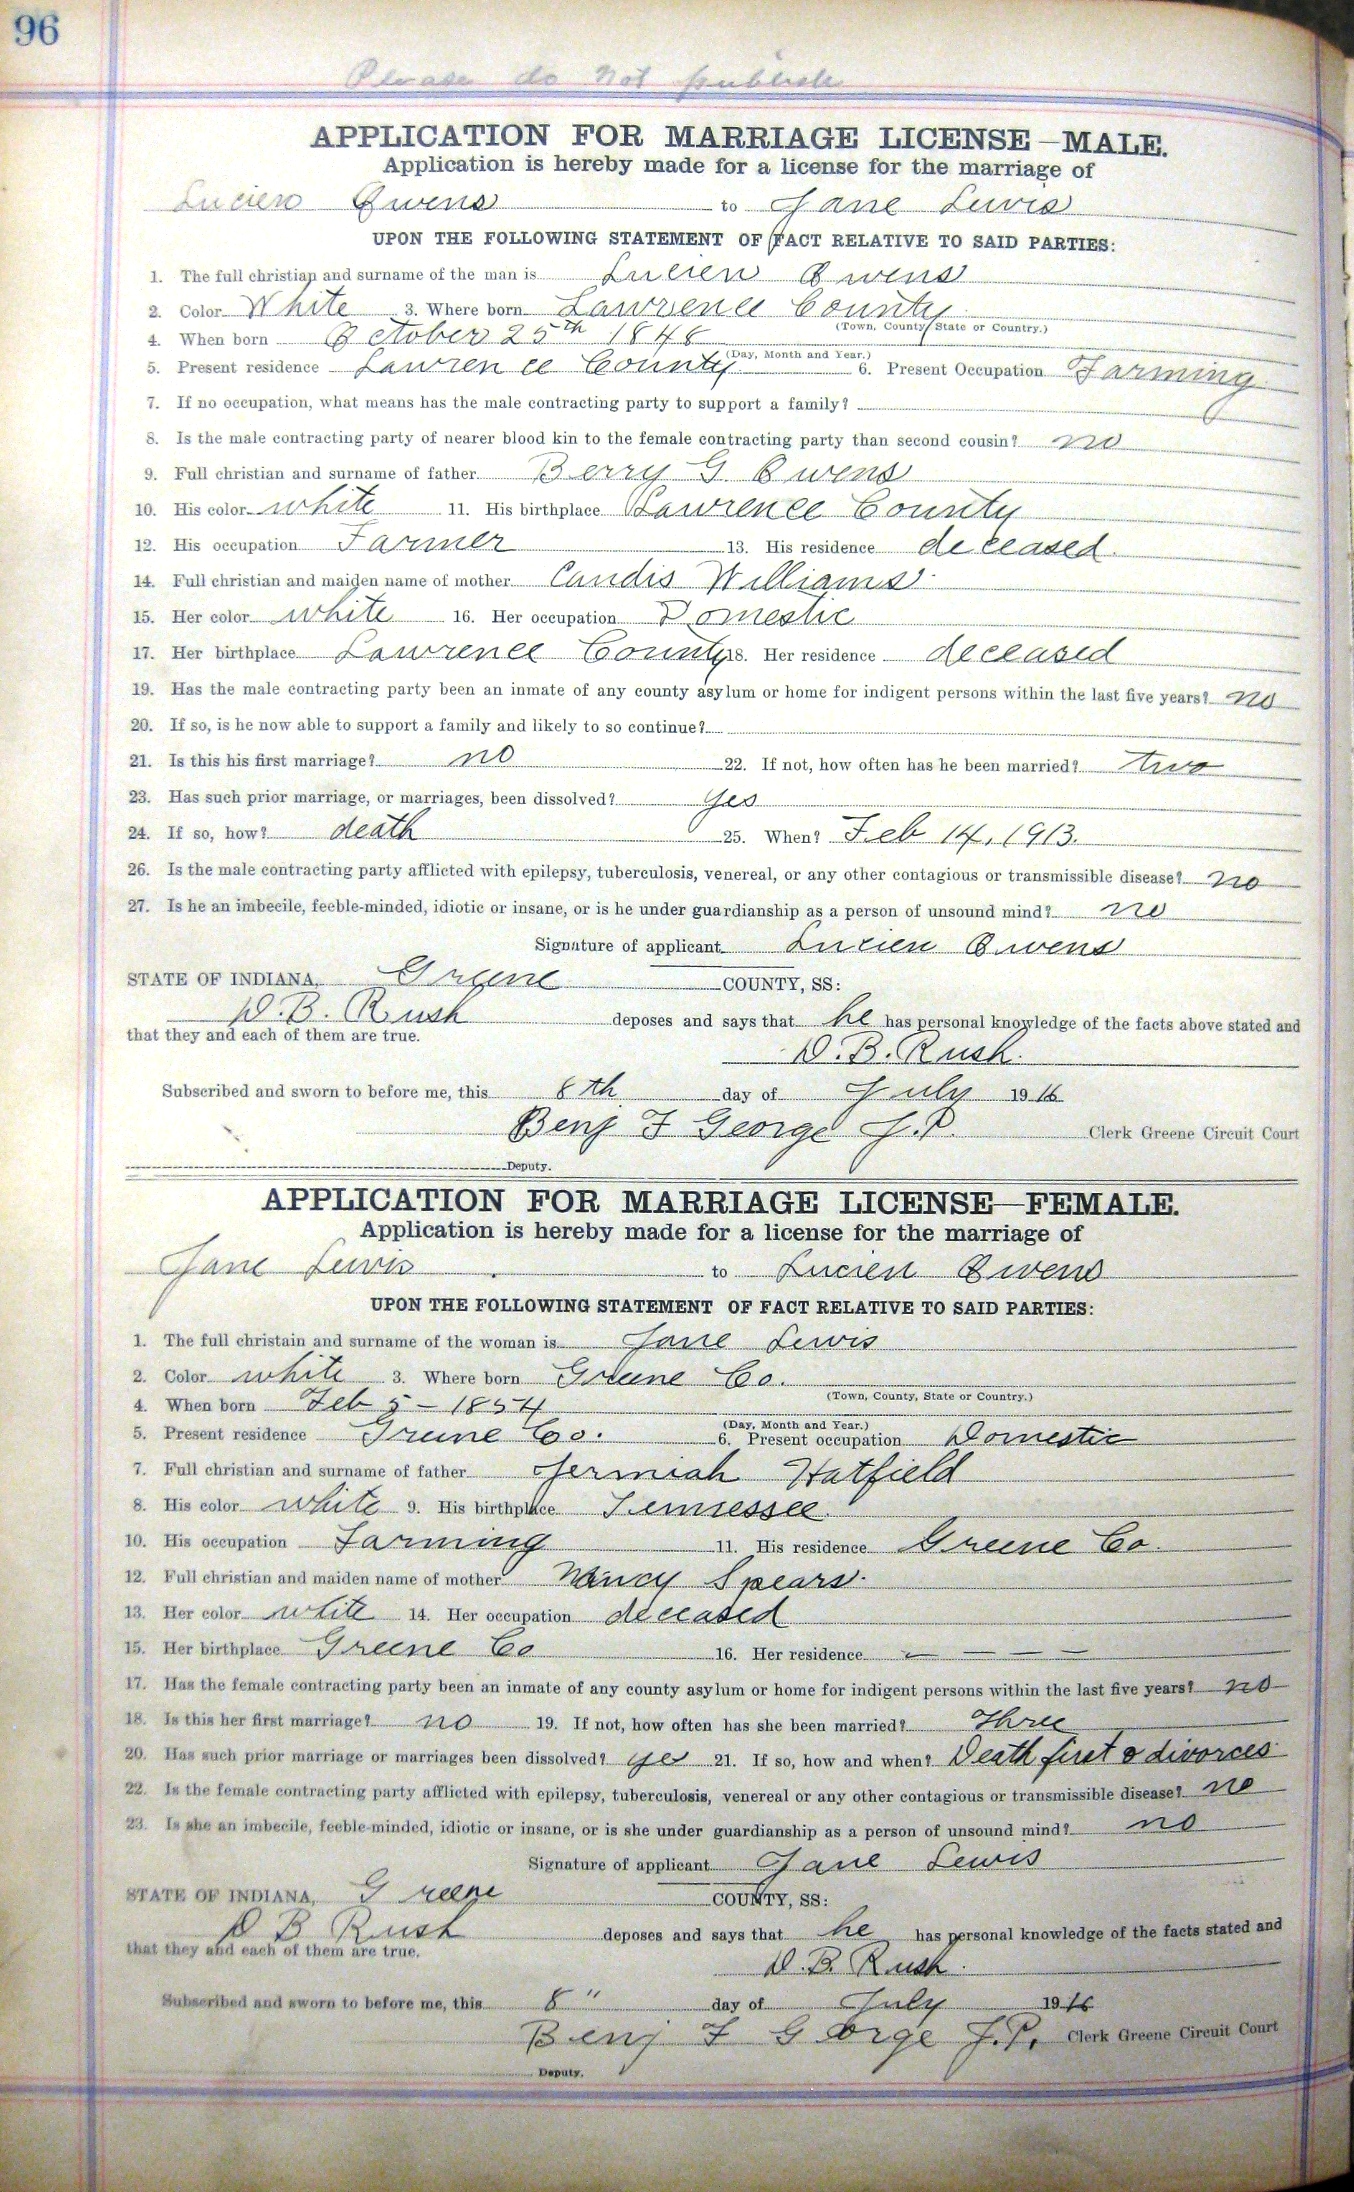 96
Please do not publish
APPLICATION FOR MARRIAGE LICENSE—MALE.
Application is hereby made for a license for the marriage of
Lucien Owens to Jane Lewis
UPON THE FOLLOWING STATEMENT OF FACT RELATIVE TO SAID PARTIES:
1. The full christian and surname of the man is Lucien Owens
2. Color White 3. Where born Lawrence County
(Town, County, State or Country.)
4. When born October 25th 1848
(Day, Month and Year.)
5. Present residence Lawrence County 6. Present Occupation Farming
7. If no occupation, what means has the male contracting party to support a family?
8. Is the male contracting party of nearer blood kin to the female contracting party than second cousin? no
9. Full christian and surname of father Berry G. Owens
10. His color white 11. His birthplace Lawrence County
12. His occupation Farmer 13. His residence deceased.
14. Full christian and maiden name of mother Candis Williams
15. Her color white 16. Her occupation Domestic
17. Her birthplace Lawrence County 18. Her residence deceased
19. Has the male contracting party been an inmate of any county asylum or home for indigent persons within the last five years? no
20. If so, is he now able to support a family and likely to so continue?
21. Is this his first marriage? no 22. If not, how often has he been married? two
23. Has such prior marriage, or marriages, been dissolved? yes
24. If so, how? death 25. When? Feb 14, 1913.
26. Is the male contracting party afflicted with epilepsy, tuberculosis, venereal, or any other contagious or transmissible disease? no
27. Is he an imbecile, feeble-minded, idiotic or insane, or is he under guardianship as a person of unsound mind? no
Signature of applicant Lucien Owens
STATE OF INDIANA, Greene COUNTY, SS:
D.B. Rush deposes and says that he has personal knowledge of the facts above stated and
that they and each of them are true.
D.B. Rush.
Subscribed and sworn to before me, this 8th day of July 1916
Benj F George J.P. Clerk Greene Circuit Court
Deputy.
APPLICATION FOR MARRIAGE LICENSE—FEMALE.
Application is hereby made for a license for the marriage of
Jane Lewis to Lucien Owens
UPON THE FOLLOWING STATEMENT OF FACT RELATIVE TO SAID PARTIES:
1. The full christain and surname of the woman is Jane Lewis
2. Color white 3. Where born Greene Co.
(Town, County, State or Country.)
4. When born Feb 5 - 1854
(Day, Month and Year.)
5. Present residence Greene Co. 6. Present occupation Domestic
7. Full christian and surname of father Jermiah Hatfield
8. His color white 9. His birthplace Tennessee
10. His occupation Farming 11. His residence Greene Co.
12. Full christian and maiden name of mother Nancy Spears.
13. Her color white 14. Her occupation deceased
15. Her birthplace Greene Co 16. Her residence — — — —
17. Has the female contracting party been an inmate of any county asylum or home for indigent persons within the last five years? no
18. Is this her first marriage? no 19. If not, how often has she been married? Three
20. Has such prior marriage or marriages been dissolved? yes 21. If so, how and when? Death first & divorces
22. Is the female contracting party afflicted with epilepsy, tuberculosis, venereal or any other contagious or transmissible disease? no
23. Is she an imbecile, feeble-minded, idiotic or insane, or is she under guardianship as a person of unsound mind? no
Signature of applicant Jane Lewis
STATE OF INDIANA, Greene COUNTY, SS:
D B Rush deposes and says that he has personal knowledge of the facts stated and
that they and each of them are true.
D.B. Rush.
Subscribed and sworn to before me, this 8" day of July 1916
Benj F George J.P. Clerk Greene Circuit Court
Deputy.